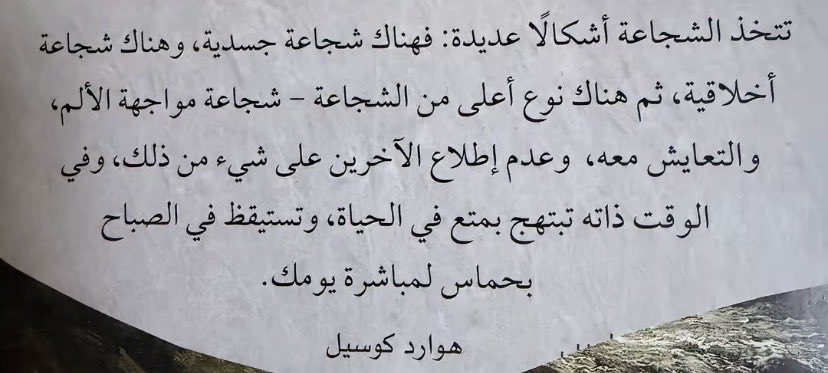 تتخذ الشجاعة أشكالًا عديدة: فهناك شجاعة جسدية، وهناك شجاعة
أخلاقية، ثم هناك نوع أعلى من الشجاعة – شجاعة مواجهة الألم،
والتعايش معه، وعدم إطلاع الآخرين على شيء من ذلك، وفي
الوقت ذاته تبتهج بمتع في الحياة، وتستيقظ في الصباح
بحماس لمباشرة يومك.
هوارد كوسيل